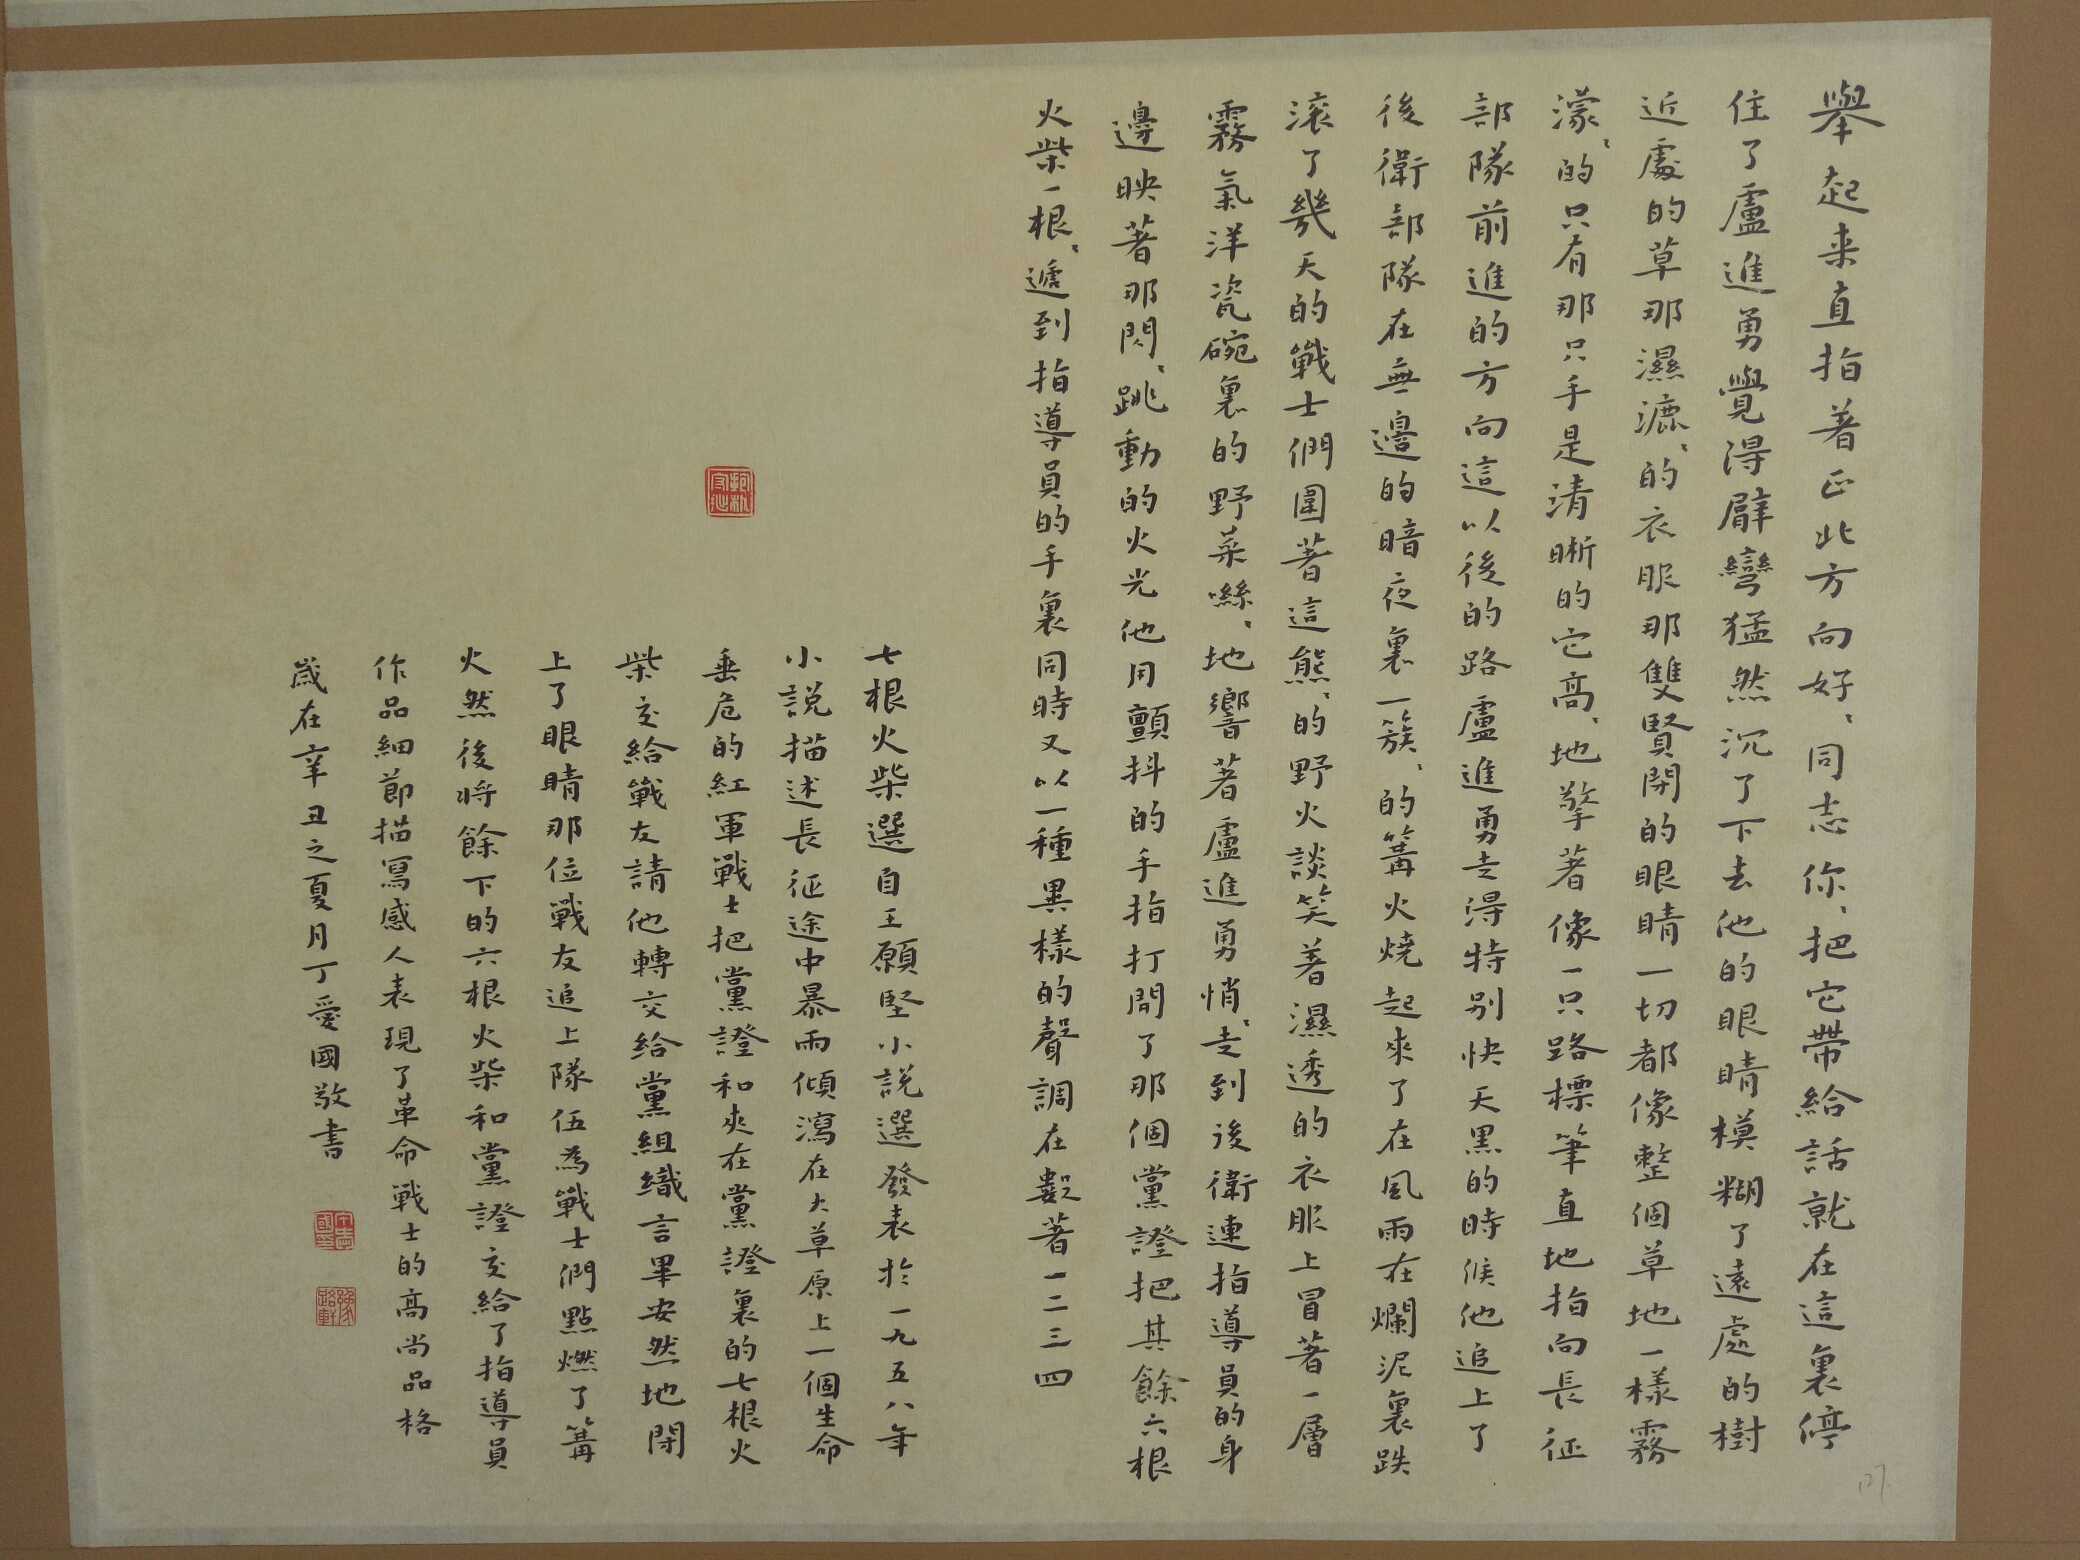 舉起来直指著正北方向好〻同志你〻把它帶給話就在這裏停
住了盧進勇覺得臂彎猛然沉了下去他的眼睛模糊了遠處的樹
近處的草那濕漉〻的衣服那雙緊閉的眼睛一切都像整個草地一樣霧
濛〻的只有那只手是清晰的它高〻地擎著像一只路標筆直地指向長征
部隊前進的方向這以後的路盧進勇走得特别快天黑的時候他追上了
後衛部隊在無邊的暗夜裏一簇〻的篝火燒起來了在風雨在爛泥裏跌
滚了幾天的戰士們圍著這熊〻的野火談笑着濕透的衣服上冒著一層
霧氣洋瓷碗裏的野菜噝〻地響著盧進勇悄〻走到後衛連指導員的身
邊映著那閃〻跳動的火光他用顫抖的手指打開了那個黨證把其餘六根
火柴一根〻遞到指導員的手裏同時又以一種異樣的聲調在數著一二三四
七根火柴選自王願堅小説選發表於一九五八年
小説描述長征途中暴雨傾瀉在大草原上一個生命
垂危的紅軍戰士把黨證和夾在黨證裏的七根火
柴交給戰友請他轉交給黨組織言畢安然地閉
上了眼睛那位戰友追上隊伍為戰士們點燃了篝
火然後將餘下的六根火柴和黨證交給了指導員
作品細節描寫感人表現了革命戰士的高尚品格
歲在辛丑之夏月丁愛國敬書